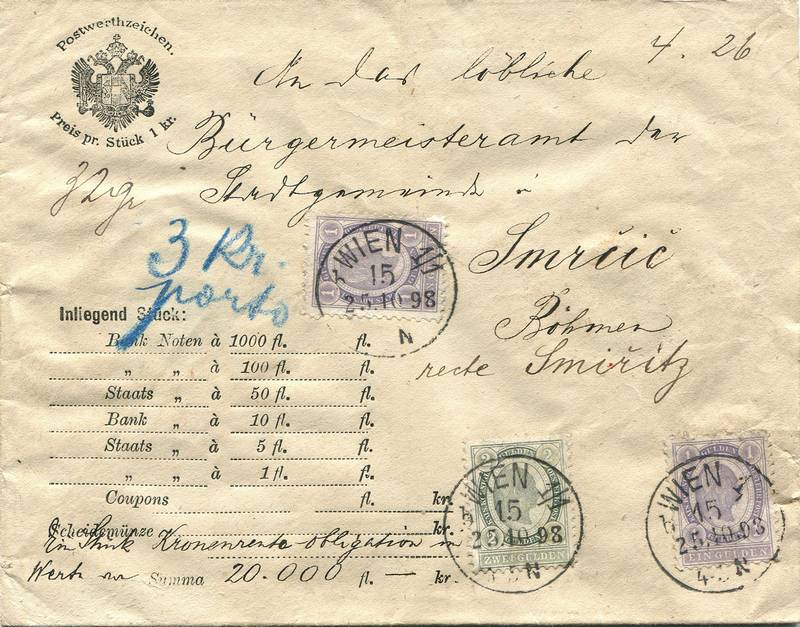 Postwerthzeichen.
Preis pr. Stück 1 kr.
4. 26
An das löbliche
Bürgermeisteramt der
Stadtgemeinde
32 gr
3 Kr.
porto
Smrčić
Böhmen
recte Smiřitz
1 1
1 1
WIEN 1/1
15
25.10.98
N
Inliegend Stück:
Bank Noten à 1000 fl. fl.
„ „ à 100 fl. fl.
Staats „ à 50 fl. fl.
Bank „ à 10 fl. fl.
Staats „ à 5 fl. fl.
„ „ à 1 fl. fl.
Coupons fl. kr.
Scheidemünze
Ein Stück Kronenrente Obligation im
Werte von Summa 20.000 fl. — kr.
2 GULDEN 2
ZWEI GULDEN
WIEN 1/1
15
25.10.98
N
1 GULDEN 1
EIN GULDEN
WIEN 1
15
25.10.98
N